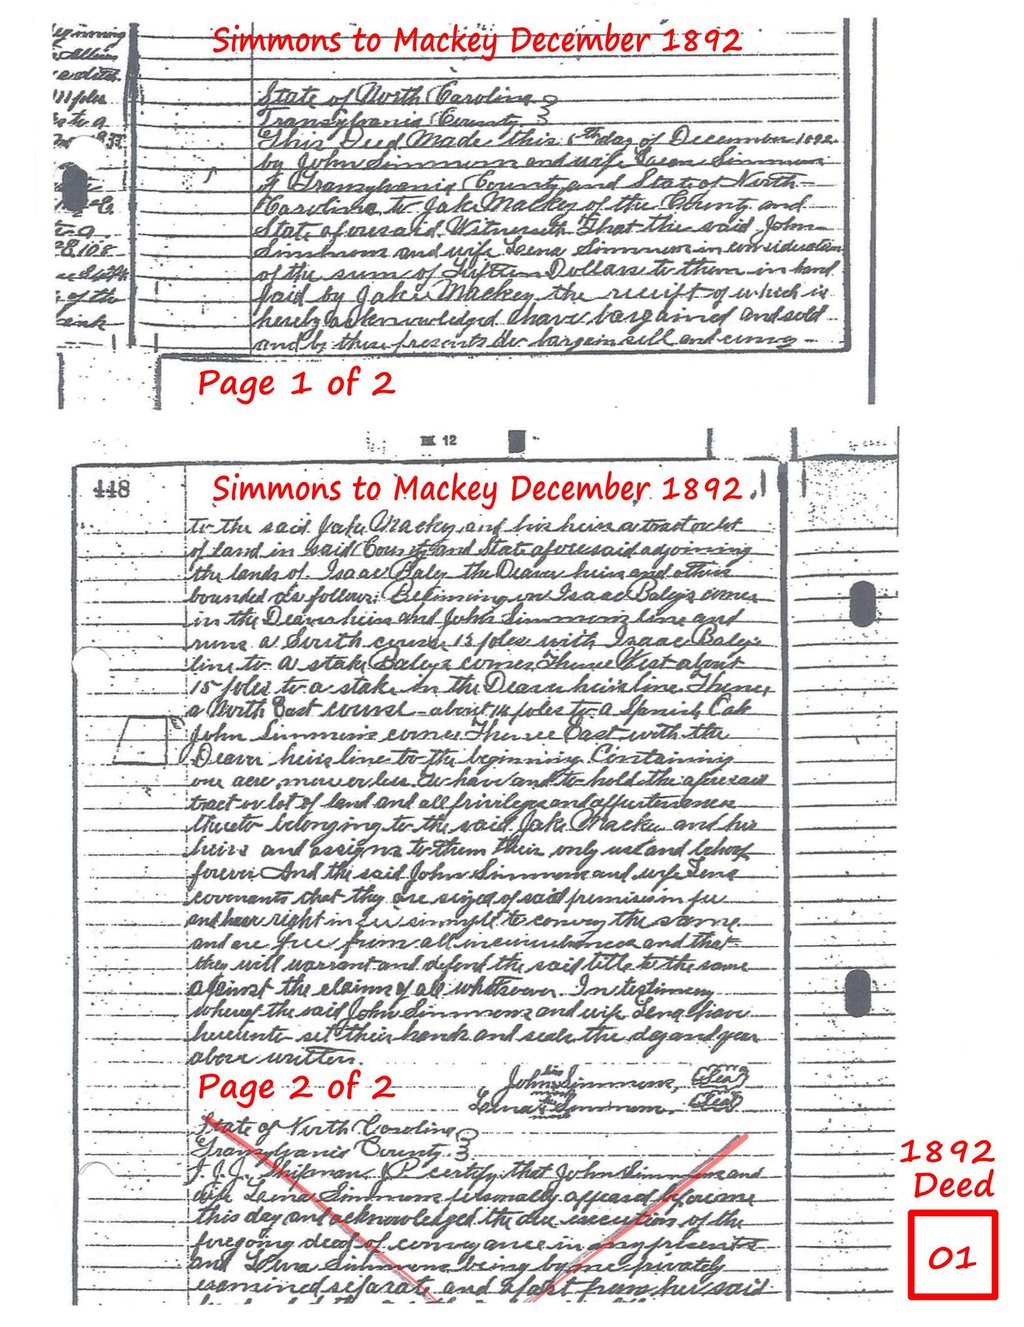 Simmons to Mackey December 1892
State of North Carolina
Transylvania County
This Deed Made this 6th day of December 1892
by John Simmons and wife Simmons
of Transylvania County and State of North
Carolina to Jake Mackey of the County and
State aforesaid Witnesseth That the said John
Simmons and wife Lena Simmons in consideration
of the sum of Fifteen Dollars to them in hand
paid by Jake Mackey the receipt of which is
hereby acknowledged have bargained and sold
and by these presents do bargain sell and convey
Page 1 of 2
12
448
Simmons to Mackey December 1892
to the said Jake Mackey and his heirs a tract or lot
of land in said County and State aforesaid adjoining
the lands of Isaac Baley the Deaver heirs and others
bounded as follows: Beginning on Isaac Baley's corner
in the Deaver heirs and John Simmons line and
runs a South course 13 poles with Isaac Baley's
line to a stake Baley's corner Thence West about
15 poles to a stake in the Deaver heirs line Thence
a North East course about 14 poles to a Spanish Oak
John Simmons corner Thence East with the
Deaver heirs line to the beginning Containing
one acre, more or less. To have and to hold the aforesaid
tract or lot of land and all privileges and appurtenances
thereto belonging to the said Jake Mackey and his
heirs and assigns to them their only use and behoof
forever And the said John Simmons and wife Lena
covenants that they are seized of said premises in fee
and have right in fee simple to convey the same
and are free from all incumbrances and that
they will warrant and defend the said title to the same
against the claims of all whatsoever. In testimony
whereof the said John Simmons and wife Lena have
hereunto set their hands and seals the day and year
above written.
Page 2 of 2
his
John Simmons, Seal
mark
her
Lena Simmons. Seal
mark
State of North Carolina
Transylvania County
I. J.J. Shipman JP certify that John Simmons and
wife Lena Simmons personally appeared before me
this day and acknowledged the due execution of the
foregoing deed of conveyance in my presents
and Lena Simmons being by me privately
examined separate and apart from her said
1892
Deed
01